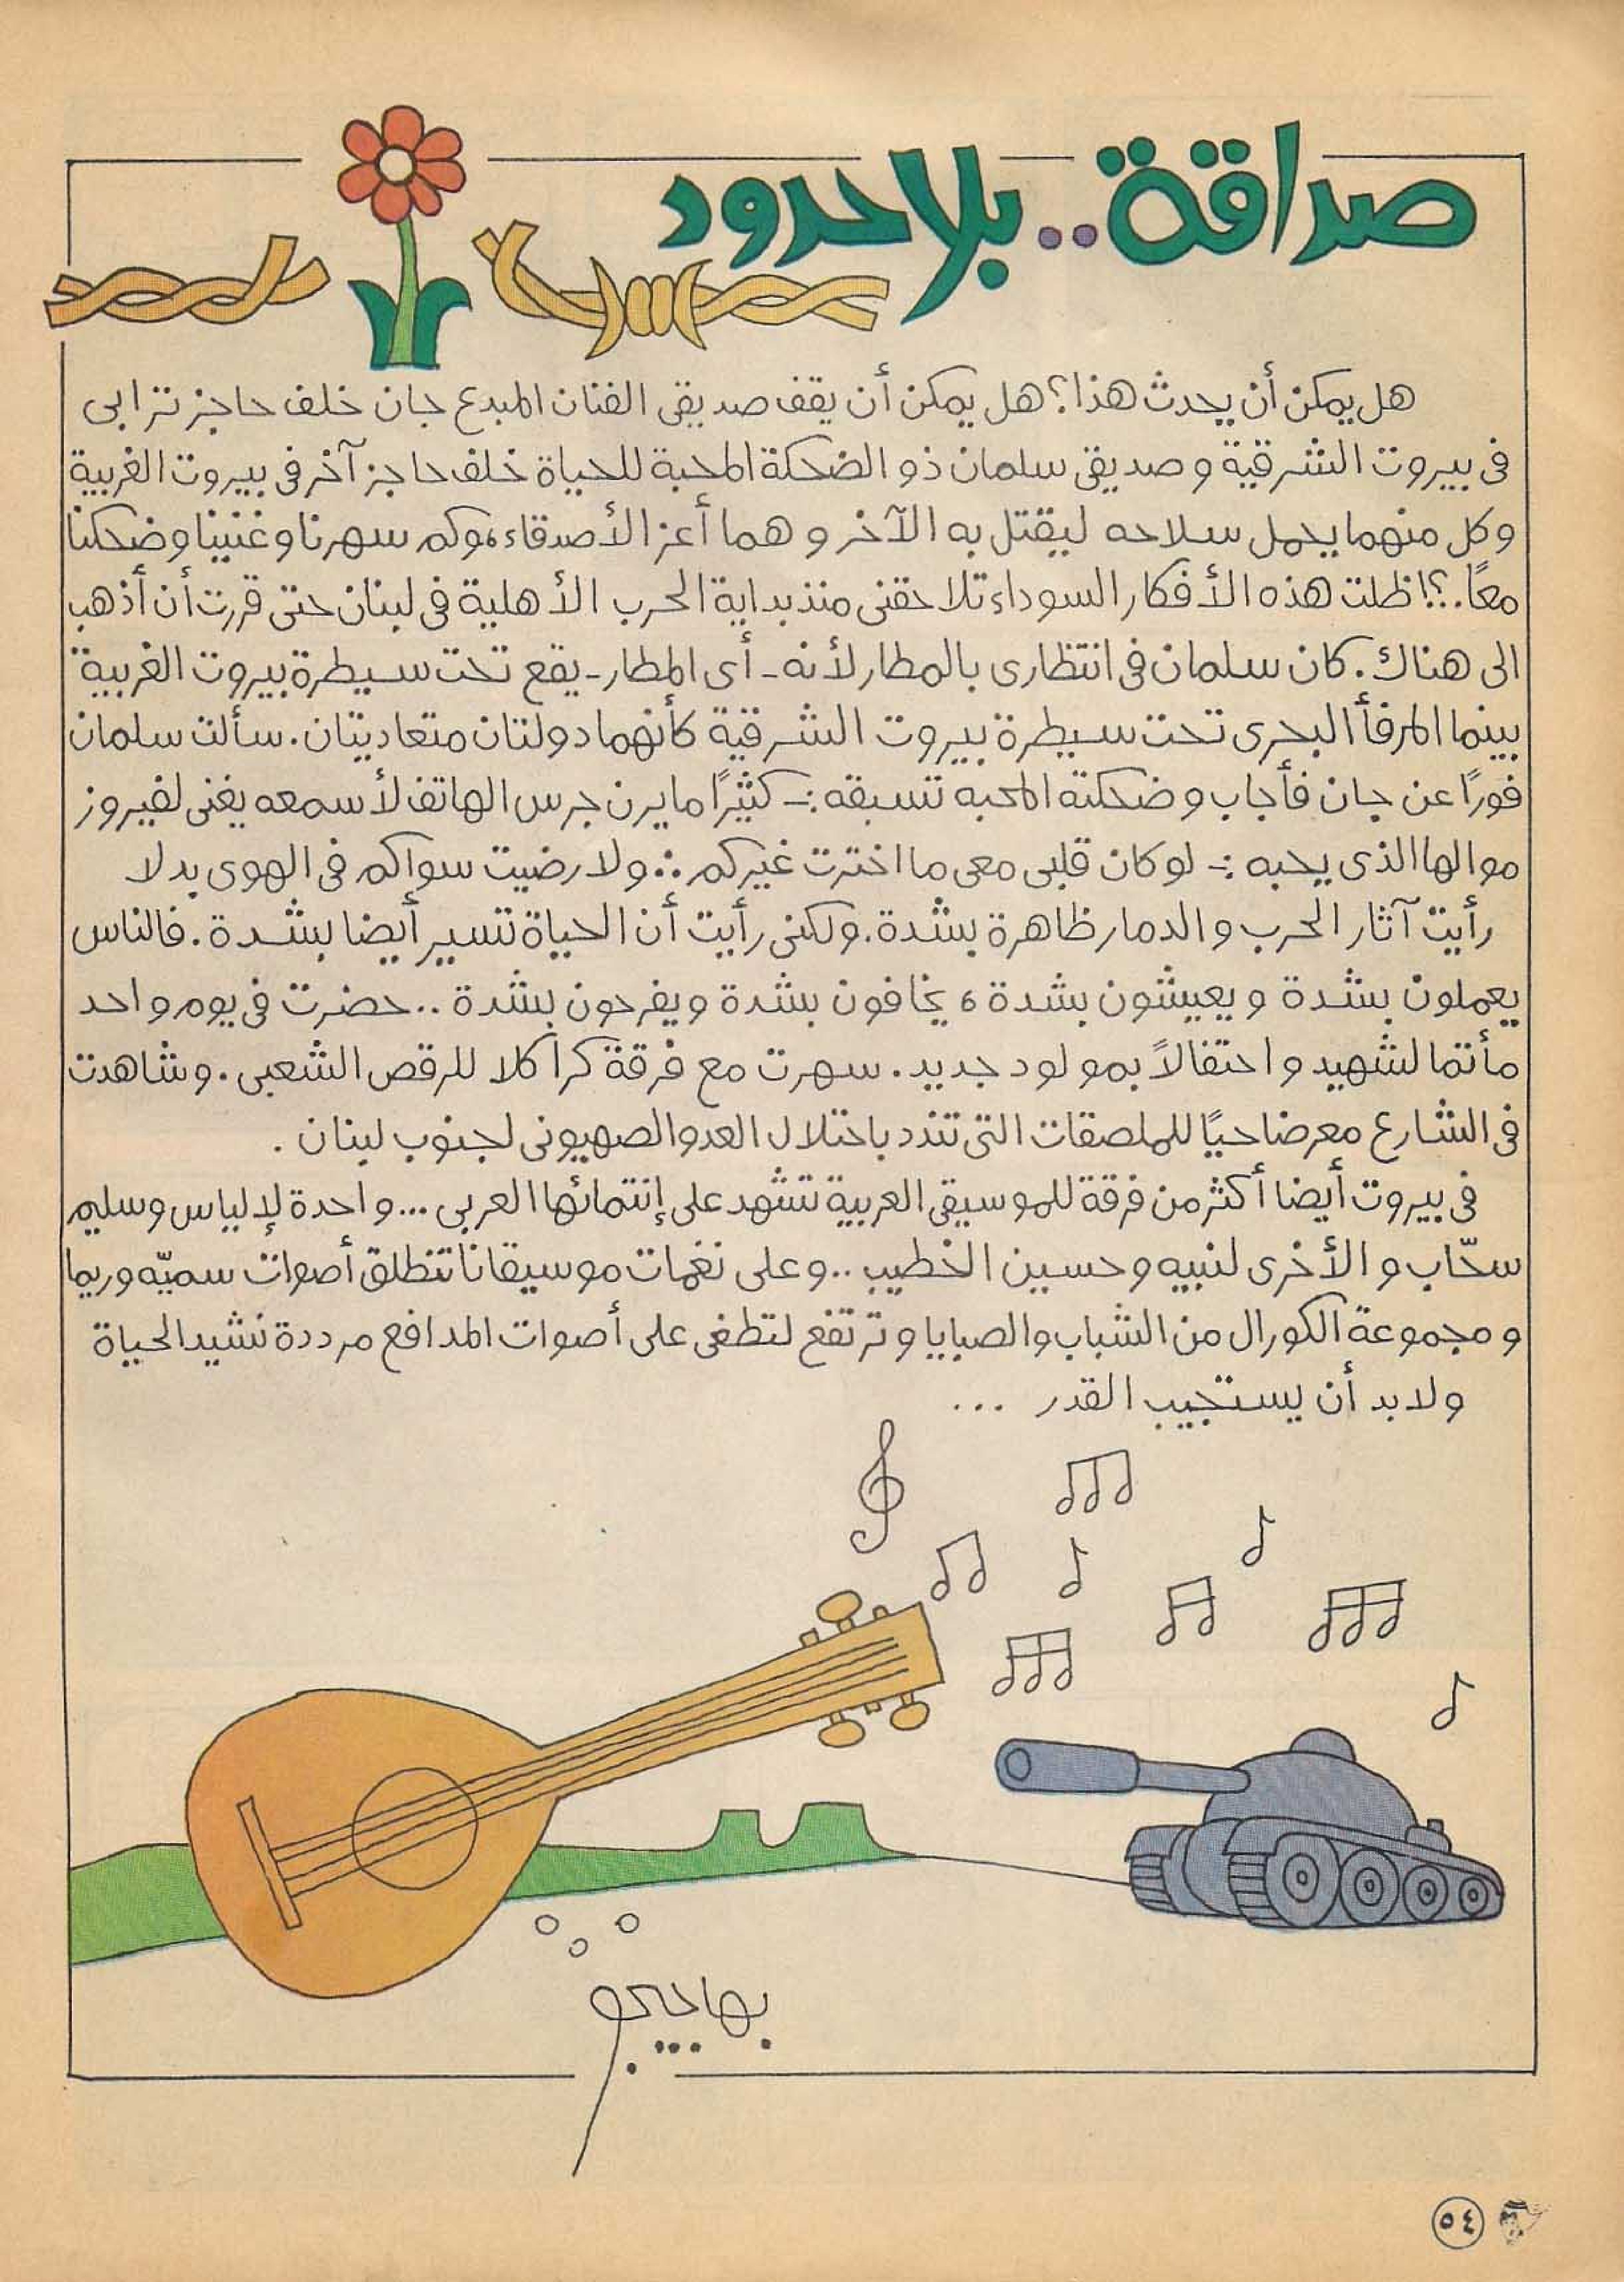 صداقة.. بلا حدود
هل يمكن أن يحدث هذا؟ هل يمكن أن يقف صديقى الفنان المبدع جان خلف حاجز ترابى
فى بيروت الشرقية و صديقى سلمان ذو الضحكة المحبة للحياة خلف حاجز آخر فى بيروت الغربية
وكل منهما يحمل سلاحه ليقتل به الآخر و هما أعز الأصدقاء، وكم سهرنا وغنينا وضحكنا
معًا.؟! ظلت هذه الأفكار السوداء تلاحقنى منذ بداية الحرب الأهلية فى لبنان حتى قررت أن أذهب
الى هناك. كان سلمان فى انتظارى بالمطار لأنه - أى المطار - يقع تحت سيطرة بيروت الغربية
بينما المرفأ البحرى تحت سيطرة بيروت الشرقية كأنهما دولتان متعاديتان. سألت سلمان
فورًا عن جان فأجاب و ضحكته المحبه تسبقه :- كثيرًا ما يرن جرس الهاتف لأسمعه يغنى لفيروز
موالها الذى يحبه :- لو كان قلبى معى ما اخترت غيركم :: ولا رضيت سواكم فى الهوى بدلا
رأيت آثار الحرب و الدمار ظاهرة بشدة. ولكنى رأيت أن الحياة تسير أيضا بشدة. فالناس
يعملون بشدة و يعيشون بشدة ، يخافون بشدة ويفرحون بشدة .. حضرت فى يوم واحد
مأتما لشهيد و احتفالاً بمولود جديد. سهرت مع فرقة كراكلا للرقص الشعبى. وشاهدت
فى الشارع معرضا حيًا للملصقات التى تندد باحتلال العدو الصهيونى لجنوب لبنان .
فى بيروت أيضا أكثر من فرقة للموسيقى العربية تشهد على إنتمائها العربى ... واحدة لإلياس وسليم
سحّاب و الأخرى لنبيه وحسين الخطيب .. وعلى نغمات موسيقانا تنطلق أصوات سميّه وريما
و مجموعة الكورال من الشباب والصبايا و ترتفع لتطغى على أصوات المدافع مرددة نشيد الحياة
ولا بد أن يستجيب القدر ...
بهاجيجو
٥٤